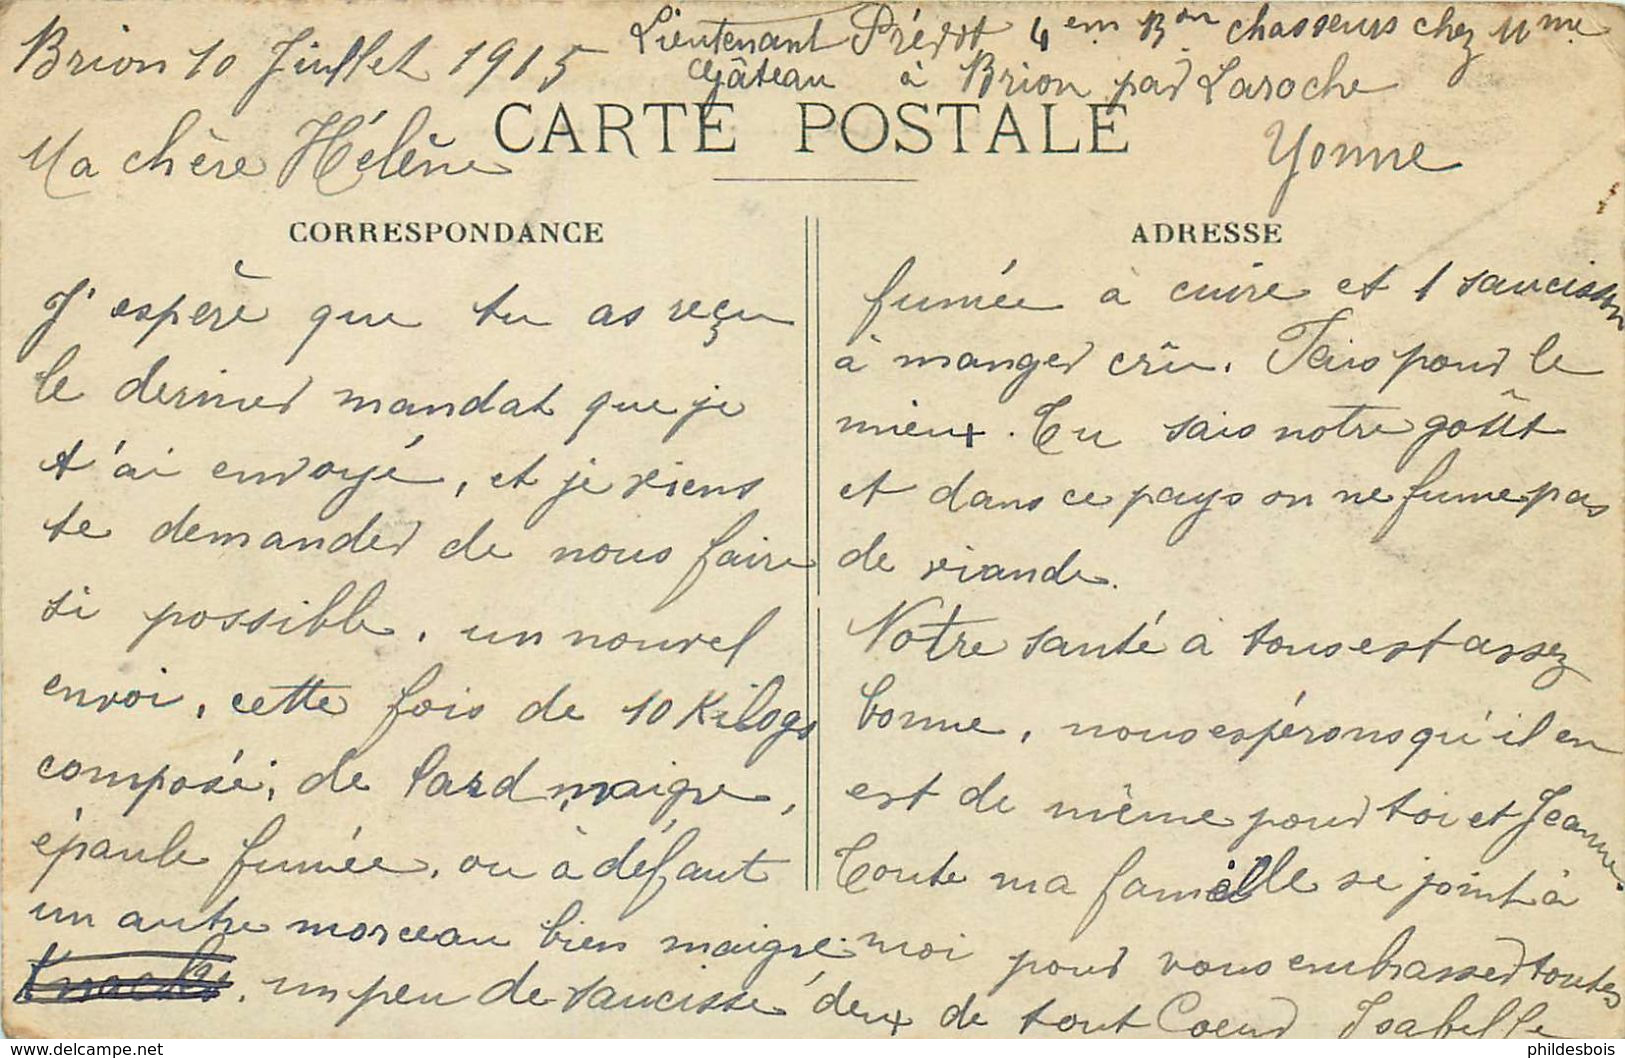 Brion 10 Juillet 1915
Lieutenant Prévot 4em Bon chasseurs chez Mme
Gâteau à Brion par Laroche
Yonne
CARTE POSTALE
Ma chère Hélène
CORRESPONDANCE
J'espère que tu as reçu
le dernier mandat que je
t'ai envoyé, et je viens
te demander de nous faire
si possible, un nouvel
envoi, cette fois de 10 Kilogs
composé, de lard maigre,
épaule fumée, ou à défaut
un autre morceau bien maigre
. un peu de saucisse
ADRESSE
fumée à cuire et 1 saucisson
à manger crû. Fais pour le
mieux. Tu sais notre goût
et dans ce pays on ne fume pas
de viande.
Notre santé à tous est assez
bonne, nous espérons qu'il en
est de même pour toi et Jeanne.
Toute ma famille se joint à
moi pour vous embrasser toutes
deux de tout Coeur Isabelle
philbesbois
www.delcampe.net